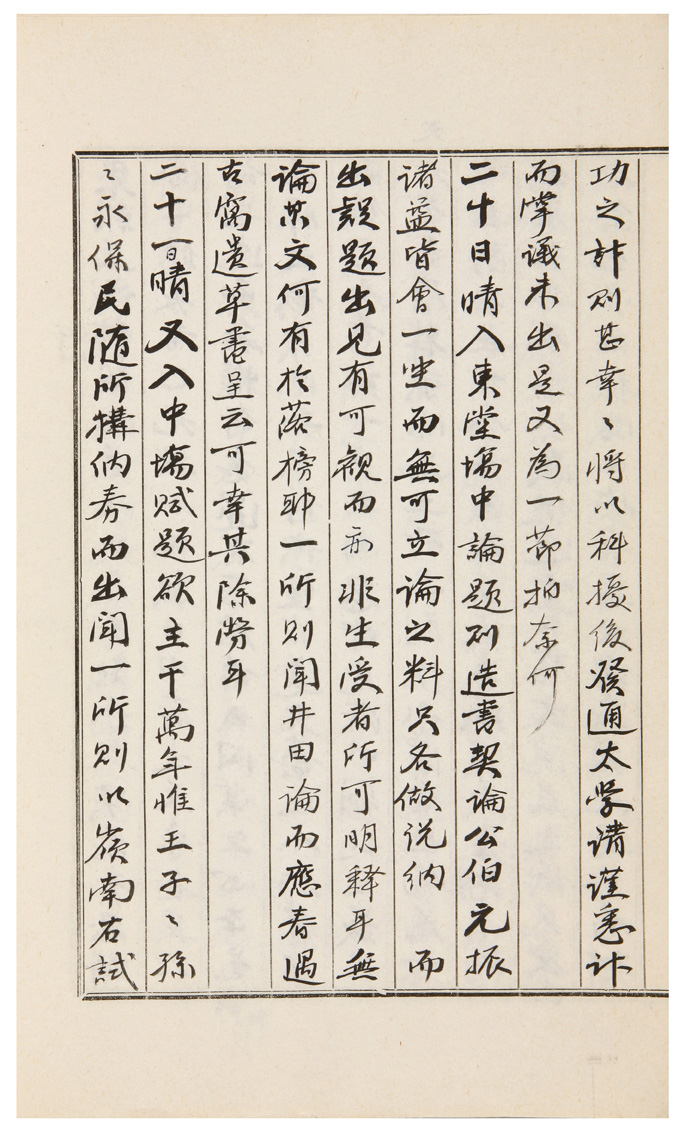 功之計則甚幸〻將以科擾後發通太學請謹悉計
而掌議未出是又為一節拍奈何
二十日晴入東堂場中論題則造書契論公伯元振
諸益皆會一坐而無可立論之料只各做說納而
出誤題出見有可觀而亦非生受者所可明釋耳無
論其文何有於落榜耶一所則聞井田論而應春過
古寓遺草書呈云可幸其除勞耳
二十一日晴又入中場賦題欲主千萬年惟王子〻孫
〻永保民隨所搆納券而出聞一所則以嶺南右試